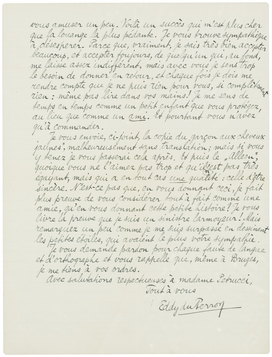 vous amuser un peu. Voilà un succès qui m'est plus cher
que la louange la plus pédante. Je vous trouve sympathique
à désespérer. Parce que, vraiment, je sais très bien accepter
beaucoup, et accepter toujours, de quelqu'un qui, au fond,
me laisse assez indifférent, mais avec vous je sens trop
le besoin de donner en retour, et chaque fois je dois me
rendre compte que je ne puis rien pour vous, si complètement
rien: même pas rire dans vos mains! Je me sens de
temps en temps comme un petit enfant que vous protégez,
au lieu que comme un ami. Et pourtant vous n'avez
qu'à commander.
Je vous envoie, ci-joint, la copie du garçon aux cheveux
jaunes, malheureusement sans translation; mais si vous
y tenez je vous passerai cela après. Et puis le "Allein",
quoique vous ne l'aimez pas trop et qu'il est pas très
épuisé, mais qui a en tout cas une qualité: celle d'être
sincère. N'est-ce pas que, en vous donnant ceci, je fait
plus preuve de vous considérer tout à fait comme une
amie, qu'en vous donnant cette petite histoire? Je vous
livre la preuve que je suis un sinistre larmoyeur. Mais
remarquez un peu comme je me suis surpassé en dessinant
les petites étoiles, qui avaient le plus votre sympathie.
Je vous demande pardon pour chaque faute de langue
et d'orthographe et vous rappelle que, même à Bruges,
je me tiens à vos ordres.
Avec salutations respectueuses à madame Petrucci,
Tout à vous
Eddy du Perron